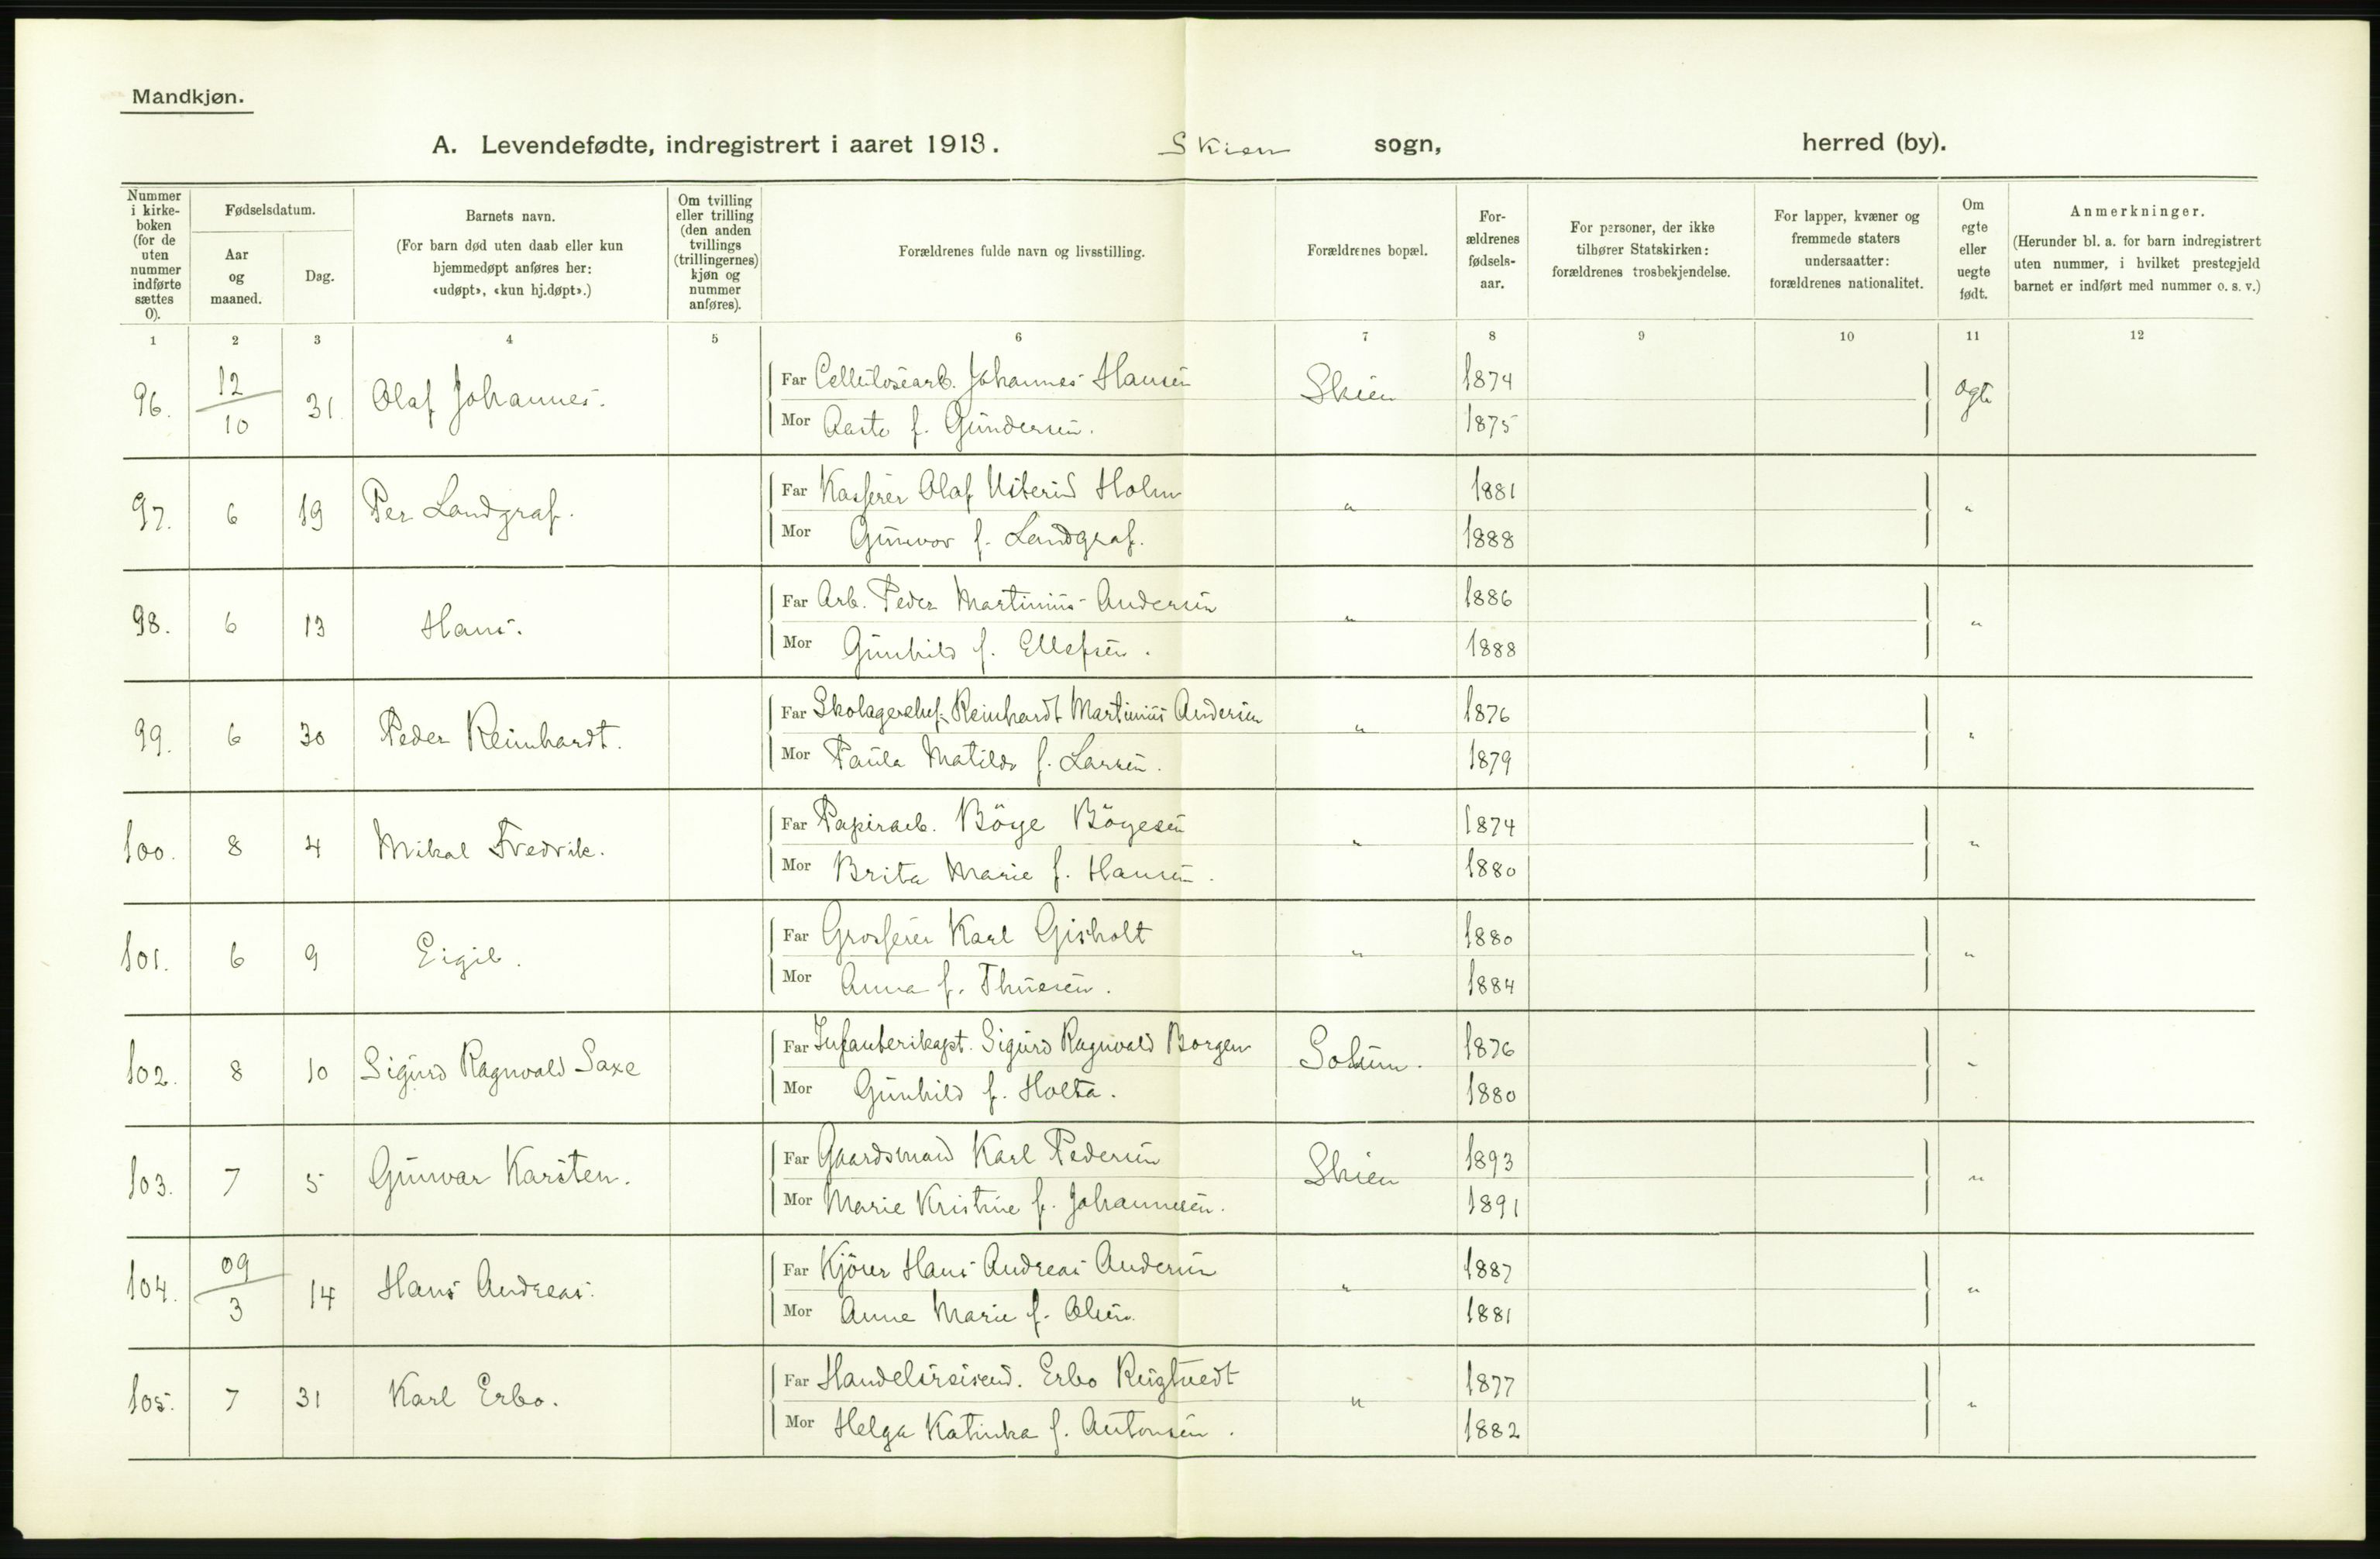 Mandkjøn.
A. Levendefødte, indregistrert i aaret 1913. Skien sogn, herred (by).
Nummer i kirke-boken (for de uten nummer indførte sættes 0).
Fødselsdatum.
Aar og maaned.
Dag.
Barnets navn.
(For barn død uten daab eller kun hjemmedøpt anføres her: «udøpt», «kun hj.døpt».)
Om tvilling eller trilling (den anden tvillings (trillingernes) kjøn og nummer anføres).
Forældrenes fulde navn og livsstilling.
Forældrenes bopæl.
For-ældrenes fødsels-aar.
For personer, der ikke tilhører Statskirken: forældrenes trosbekjendelse.
For lapper, kvæner og fremmede staters undersaatter: forældrenes nationalitet.
Om egte eller uegte født.
Anmerkninger.
(Herunder bl. a. for barn indregistrert uten nummer, i hvilket prestegjeld barnet er indført med nummer o. s. v.)
1 2 3 4 5 6 7 8 9 10 11 12
96. 12/10 31 Olaf Johannes. Far Cellulosearb. Johannes Hansen Skien 1874
Mor Aaste f. Gundersen. 1875
97. 6 19 Per Landgraf. Far Kasserer Olaf Holm " 1881 "
Mor Gunvor f. Landgraf. 1888
98. 6 13 Hans. Far Arb. Peder Martinius Andersen " 1886 "
Mor Gunhild f. Ellefsen. 1888
99. 6 30 Peder Reinhardt. Far Reinhardt Martinius Andersen " 1876 "
Mor Paula Matilde f. Larsen. 1879
100. 8 4 Mikal Fredrik. Far Papirarb. Böye Böyesen " 1874 "
Mor Brita Marie f. Hansen. 1880
101. 6 9 Eigil. Far Grosserer Karl Gisholt " 1880 "
Mor Anna f. Thuesen. 1884
102. 8 10 Sigurd Ragnvald Saxe Far Infanterikapt. Sigurd Ragnvald Borgen Solum. 1876 "
Mor Gunhild f. Holta. 1880
103. 7 5 Gunvar Karsten. Far Gaardsmand Karl Pedersen Skien 1893 "
Mor Marie Kristine f. Johannesen. 1891
104. 09/3 14 Hans Andreas. Far Kjörer Hans Andreas Andersen " 1887 "
Mor Anne Marie f. Olsen. 1881
105. 7 31 Karl Erbo. Far Handelsreisend. Erbo " 1877 "
Mor Helga Katinka f. Antonsen. 1882